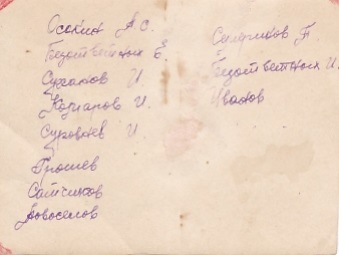 Осокин А С.
Безответных Е.
Суханов И.
Комаров И.
Суровцев И
Грошев
Сатчиков
Новоселов
Смирнов Г.
Безответных И.
Иванов